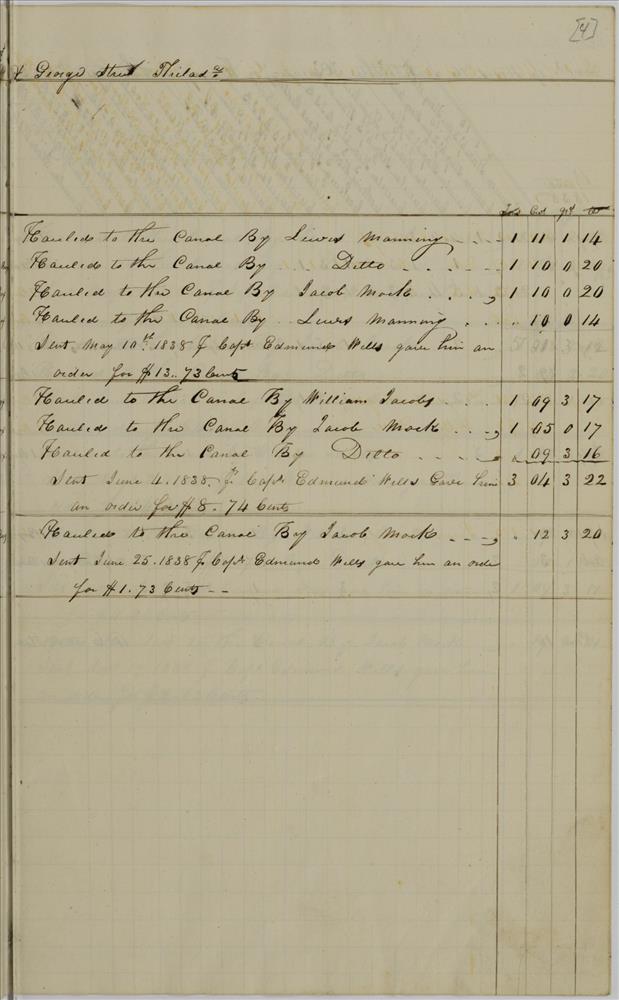 [4]
& George Street Philada
Tons Cwt qrs lb
Hauled to the Canal By Lewis Manning 1 11 1 14
Hauled to the Canal By Ditto 1 10 0 20
Hauled to the Canal By Jacob Mock 1 10 0 20
Hauled to the Canal By Lewis Manning " 10 0 14
Sent May 10th 1838 p Capt Edmund Wells gave him an
order for $13..73 Cents
Hauled to the Canal By William Jacobs 1 09 3 17
Hauled to the Canal By Jacob Mock 1 05 0 17
Hauled to the Canal By Ditto " 09 3 16
Sent June 4. 1838. pr Capt Edmund Wells Gave him 3 04 3 22
an order for $8. 74 Cents
Hauled to the Canal By Jacob Mock " 12 3 20
Sent June 25. 1838 p Capt Edmund Wells gave him an order
for $1. 73 Cents - -